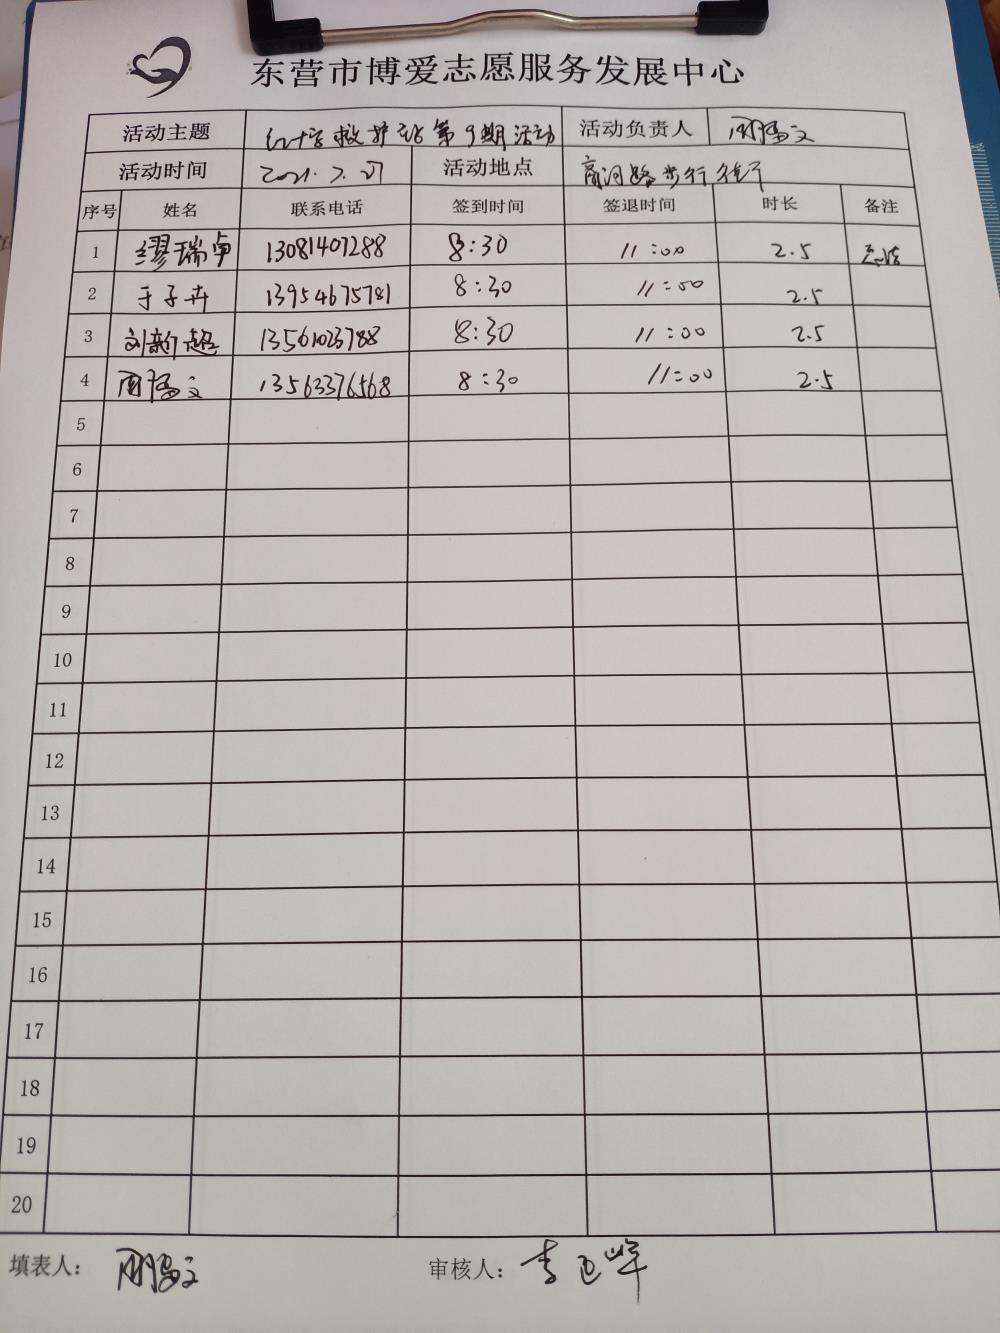 东营市博爱志愿服务发展中心
活动主题 红十字救护站第9期活动 活动负责人 周鹏文
活动时间 2021.7.27 活动地点 商河路步行街
序号 姓名 联系电话 签到时间 签退时间 时长 备注
1 缪瑞卓 13081407288 8:30 11:00 2.5
2 于子卉 13954675781 8:30 11:00 2.5
3 刘新超 13561023788 8:30 11:00 2.5
4 周鹏文 13563376568 8:30 11:00 2.5
5
6
7
8
9
10
11
12
13
14
15
16
17
18
19
20
填表人: 周鹏文 审核人: 李卫峰